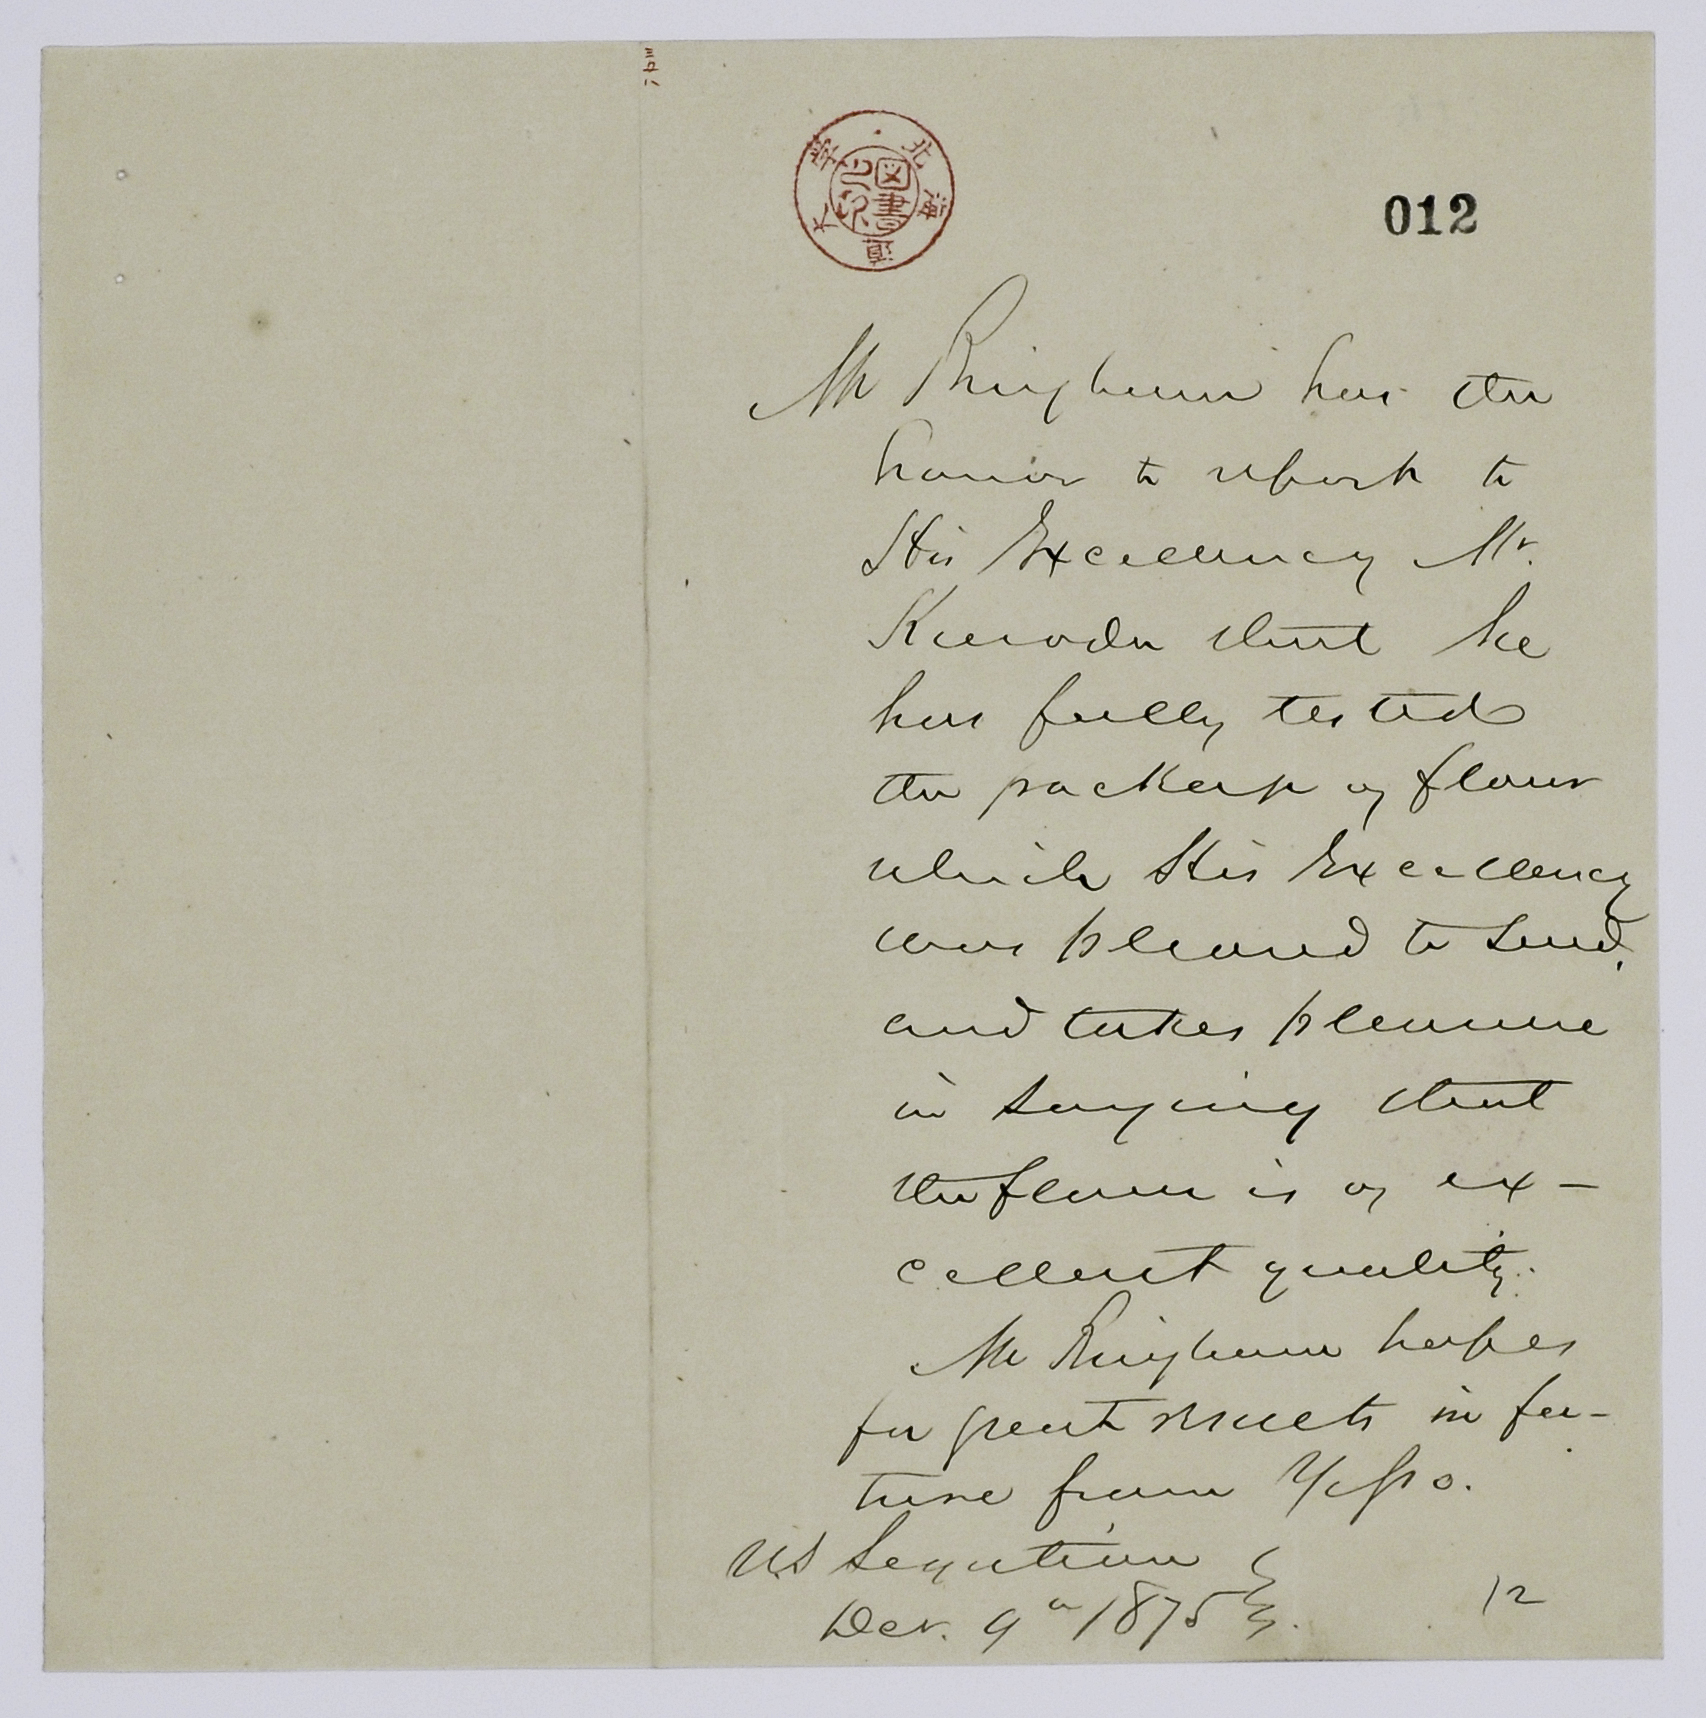 012
北海道大学
図書之印
Mr Bingham has the
honor to report to
His Excellency Mr.
Kuroda that he
has fully tested
the package of flour
which His Excellency
was pleased to send,
and takes pleasure
in saying that
the flour is of ex-
cellent quality.
Mr Bingham hopes
for great results in fu-
ture from Yesso.
US Legation
Dec. 9th 1875.
12